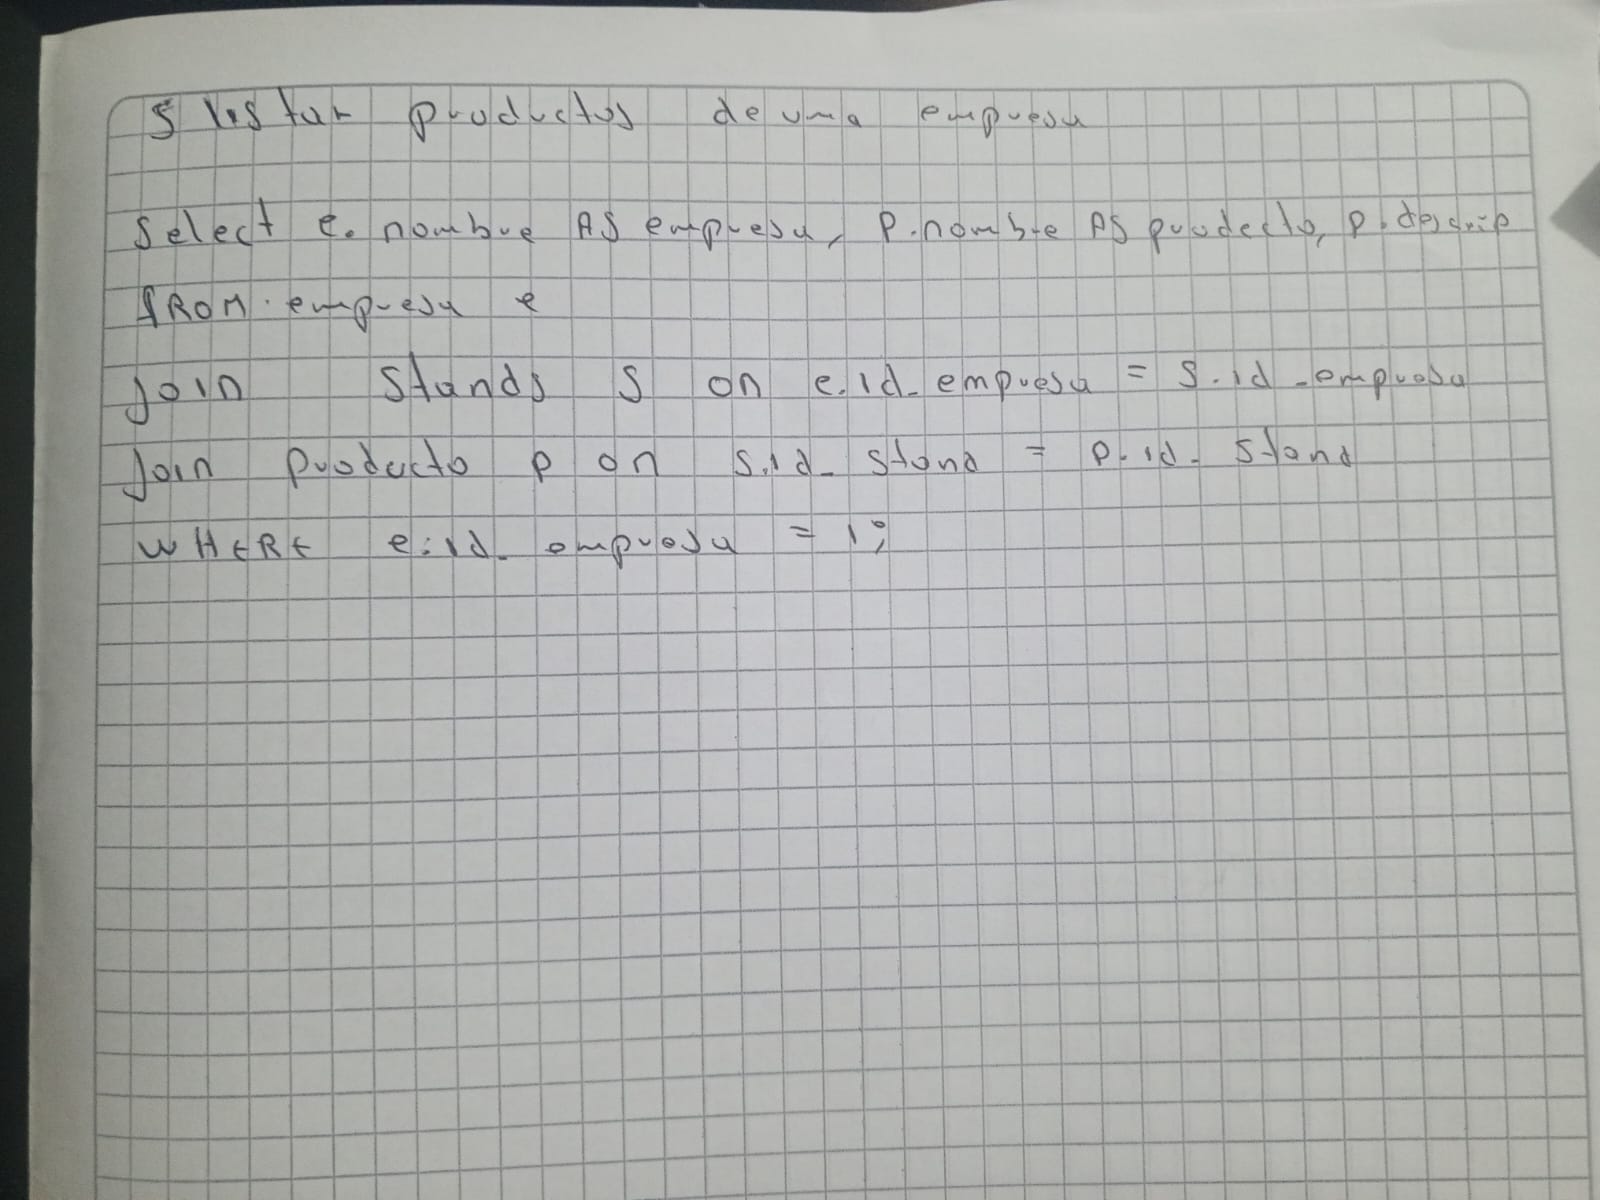 5 listar productos de una empresa
Select e. nombre AS empresa, P. nombre AS producto, p. descrip
FROM. empresa e
Join Stands S on e.id_empresa = S.id_empresa
Join Producto p on s.id_stand = p.id_stand
WHERE e.id_empresa = 1;